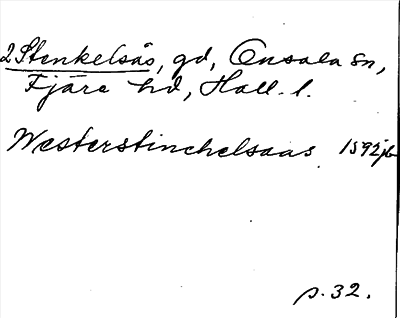 2 Stenkelsås, gd, Onsala sn,
Fjäre hd, Hall. l.
Westerstinchelsaas 1592 jb
s. 32.